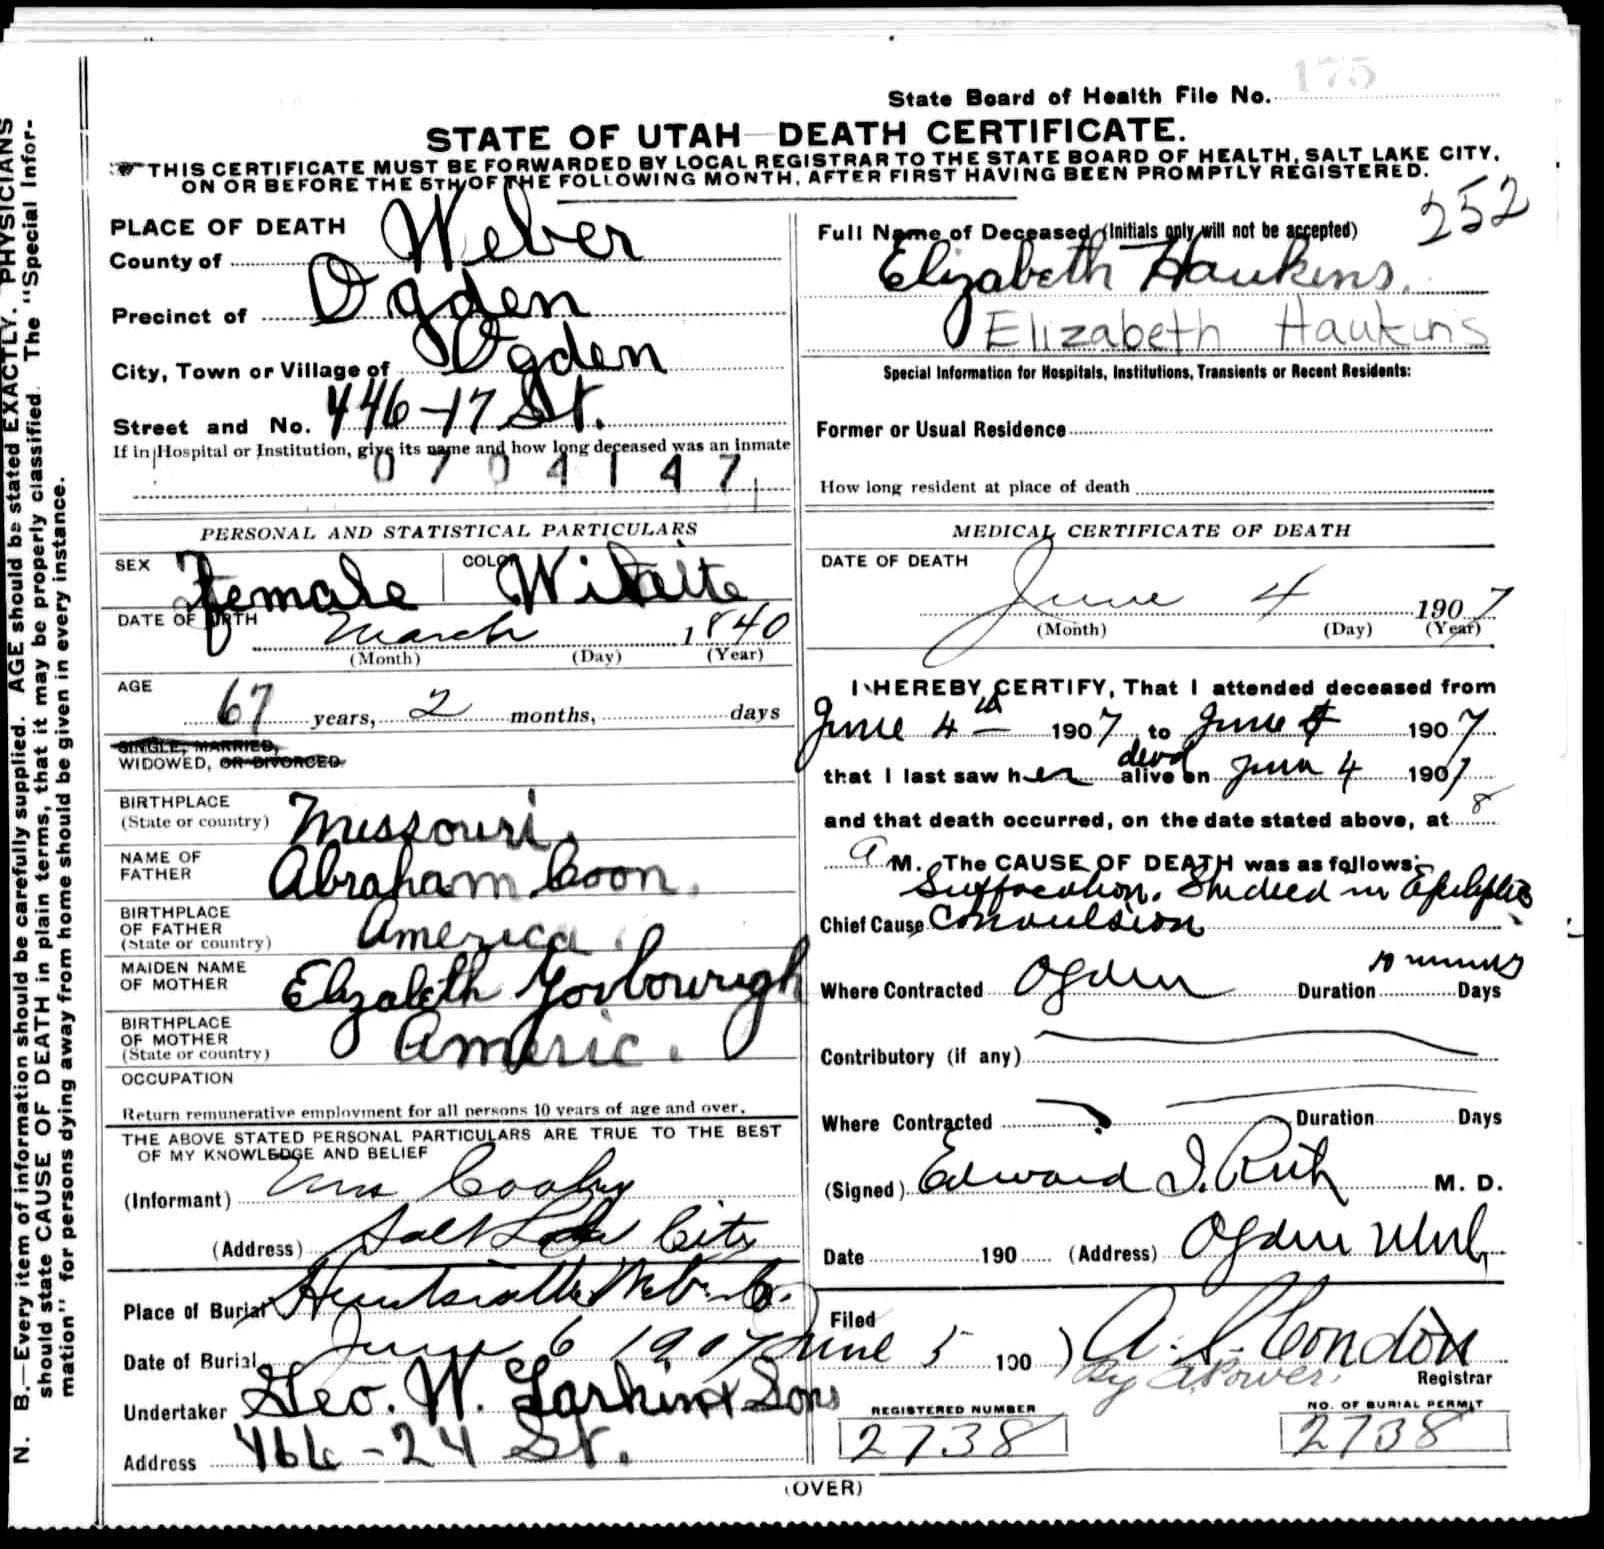 175
State Board of Health File No.
STATE OF UTAH—DEATH CERTIFICATE.
THIS CERTIFICATE MUST BE FORWARDED BY LOCAL REGISTRAR TO THE STATE BOARD OF HEALTH, SALT LAKE CITY,
ON OR BEFORE THE 5TH OF THE FOLLOWING MONTH, AFTER FIRST HAVING BEEN PROMPTLY REGISTERED.
252
PLACE OF DEATH
County of Weber
Precinct of Ogden
City, Town or Village of Ogden
Street and No. 446-17 St.
If in Hospital or Institution, give its name and how long deceased was an inmate
0704147
PERSONAL AND STATISTICAL PARTICULARS
SEX Female COLOR
DATE OF BIRTH March 1840
(Month) (Day) (Year)
AGE 67 years, 2 months, days
SINGLE, MARRIED,
WIDOWED, OR DIVORCED
BIRTHPLACE
(State or country) Missouri.
NAME OF
FATHER Abraham Coon.
BIRTHPLACE
OF FATHER
(State or country) America.
MAIDEN NAME
OF MOTHER Elizabeth
BIRTHPLACE
OF MOTHER
(State or country) Americ.
OCCUPATION
Return remunerative employment for all persons 10 years of age and over.
THE ABOVE STATED PERSONAL PARTICULARS ARE TRUE TO THE BEST
OF MY KNOWLEDGE AND BELIEF
(Informant)
(Address) Salt Lake City
Place of Burial Huntsville Weber Co.
Date of Burial June 6 1907
Undertaker Geo. W. Larkin & Sons
Address 466-24 St.
Full Name of Deceased (Initials only will not be accepted)
Elizabeth Haukins.
Elizabeth Haukins
Special Information for Hospitals, Institutions, Transients or Recent Residents:
Former or Usual Residence
How long resident at place of death
MEDICAL CERTIFICATE OF DEATH
DATE OF DEATH
June 4 1907
(Month) (Day) (Year)
I HEREBY CERTIFY, That I attended deceased from
June 4th 1907, to June 4 1907
that I last saw her dead alive on June 4 1907
and that death occurred, on the date stated above, at 8
A M. The CAUSE OF DEATH was as follows:
Suffocation. She died in Epileptic
Chief Cause Convulsion
Where Contracted Ogden Duration 10 minutes Days
Contributory (if any)
Where Contracted Duration Days
(Signed) Edward I. Rich M. D.
Date 190 (Address) Ogden Utah
Filed
June 5 190 7 A. S. Condon
By A Power. Registrar
REGISTERED NUMBER
2738
NO. OF BURIAL PERMIT
2738
(OVER)
N. B.—Every item of information should be carefully supplied. AGE should be stated EXACTLY. PHYSICIANS
should state CAUSE OF DEATH in plain terms, that it may be properly classified. The "Special Infor-
mation" for persons dying away from home should be given in every instance.